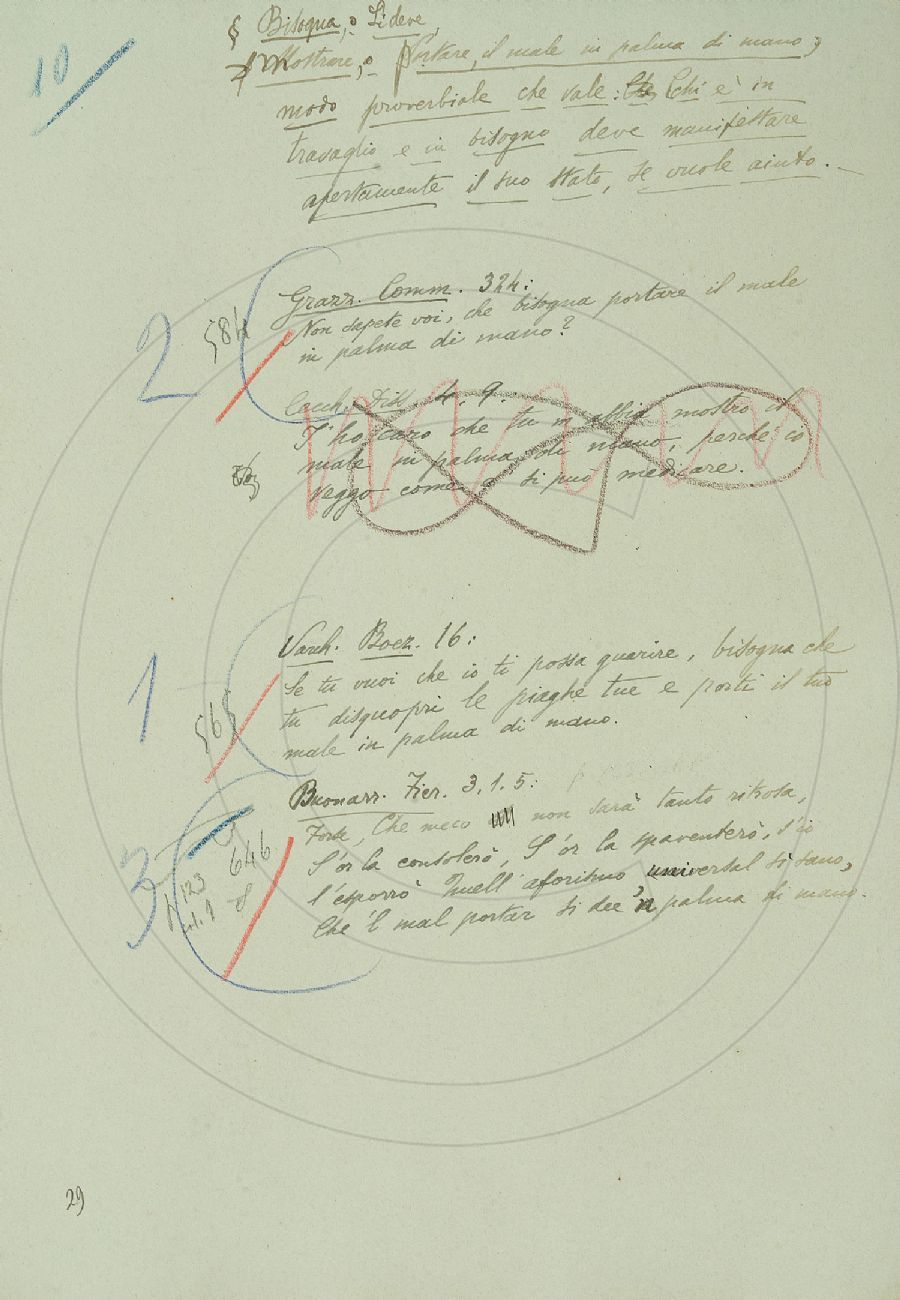 10
§ Bisogna, o Si deve,
Mostrare, o Portare, il male in palma di mano;
modo proverbiale che vale: Che Chi è in
travaglio e in bisogno deve manifestare
apertamente il suo stato, se vuole aiuto. –
2
584
Grazz. Comm. 324:
Non sapete voi, che bisogna portare il male
in palma di mano?
Cecch. 4. 9.
T'ho caro che tu m'abbia mostro il
male in palma di mano, perché io
veggo come si può medicare.
1
565
Varch. Boez. 16:
Se tu vuoi che io ti possa guarire, bisogna che
tu discuopri le piaghe tue e porti il tuo
male in palma di mano.
3
646
123
Buonarr. Fier. 3. 1. 5:
Forse, Che meco non sarà tanto ritrosa,
S'or la consolerò, S'or la spaventerò, S'io
l'esporrò Quell'aforismo universal sì sano,
Che 'l mal portar si dee 'n palma di mano.
29